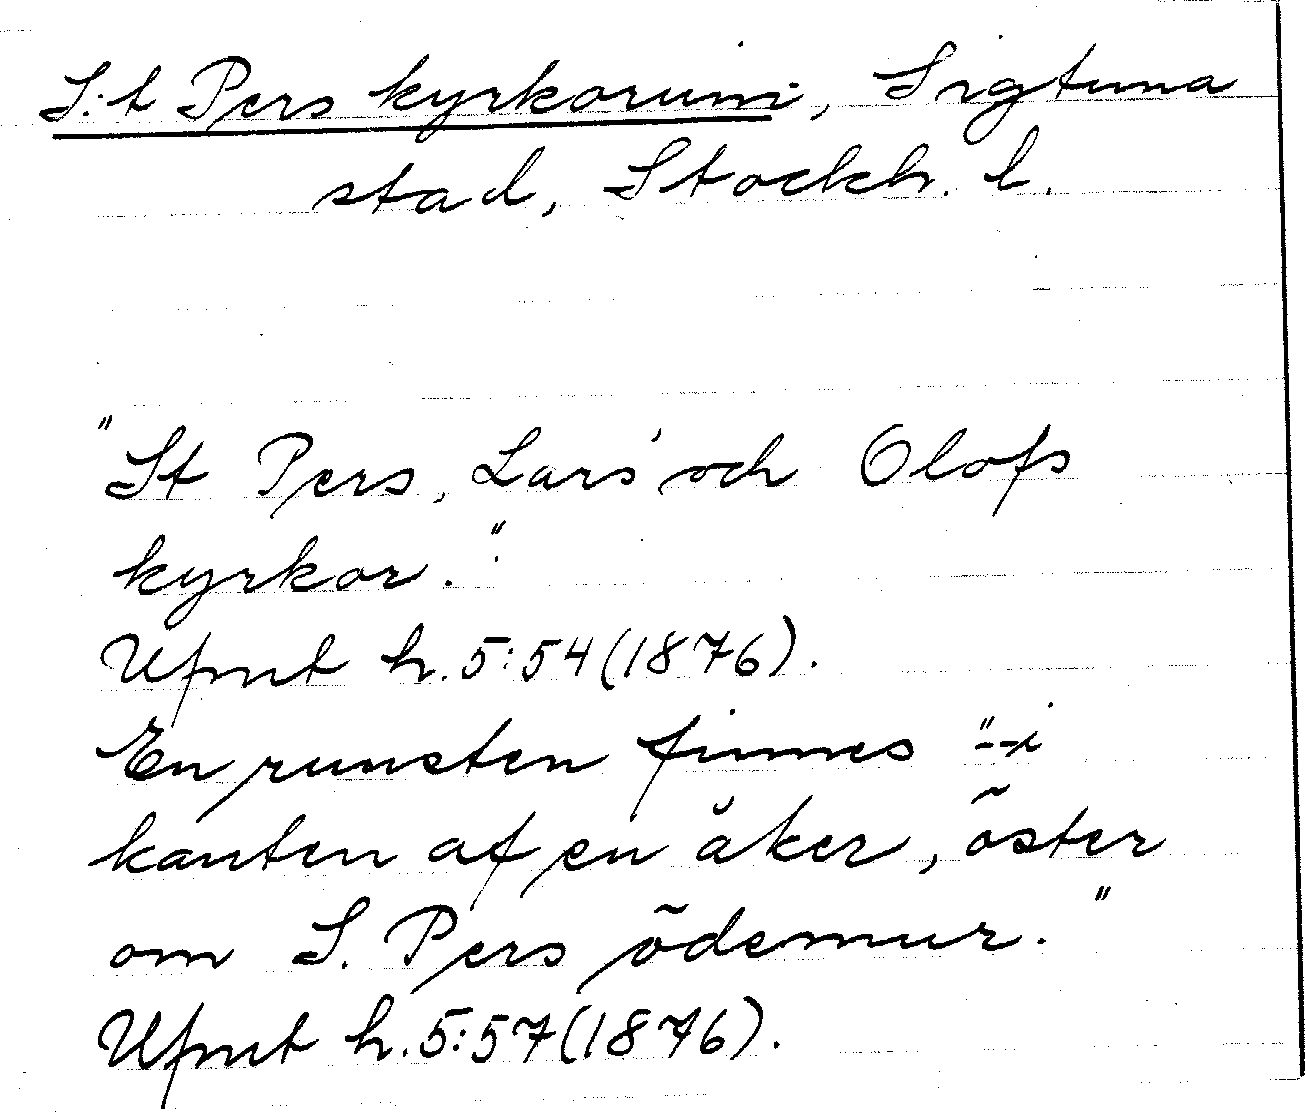 S:t Pers kyrkoruin, Sigtuna
stad, Stockh. l.
"St Pers, Lars' och Olofs
kyrkor."
Ufmt h. 5:54 (1876).
En runsten finnes "--i
kanten af en åker, öster
om S. Pers ödemur."
Ufmt h. 5:57 (1876).